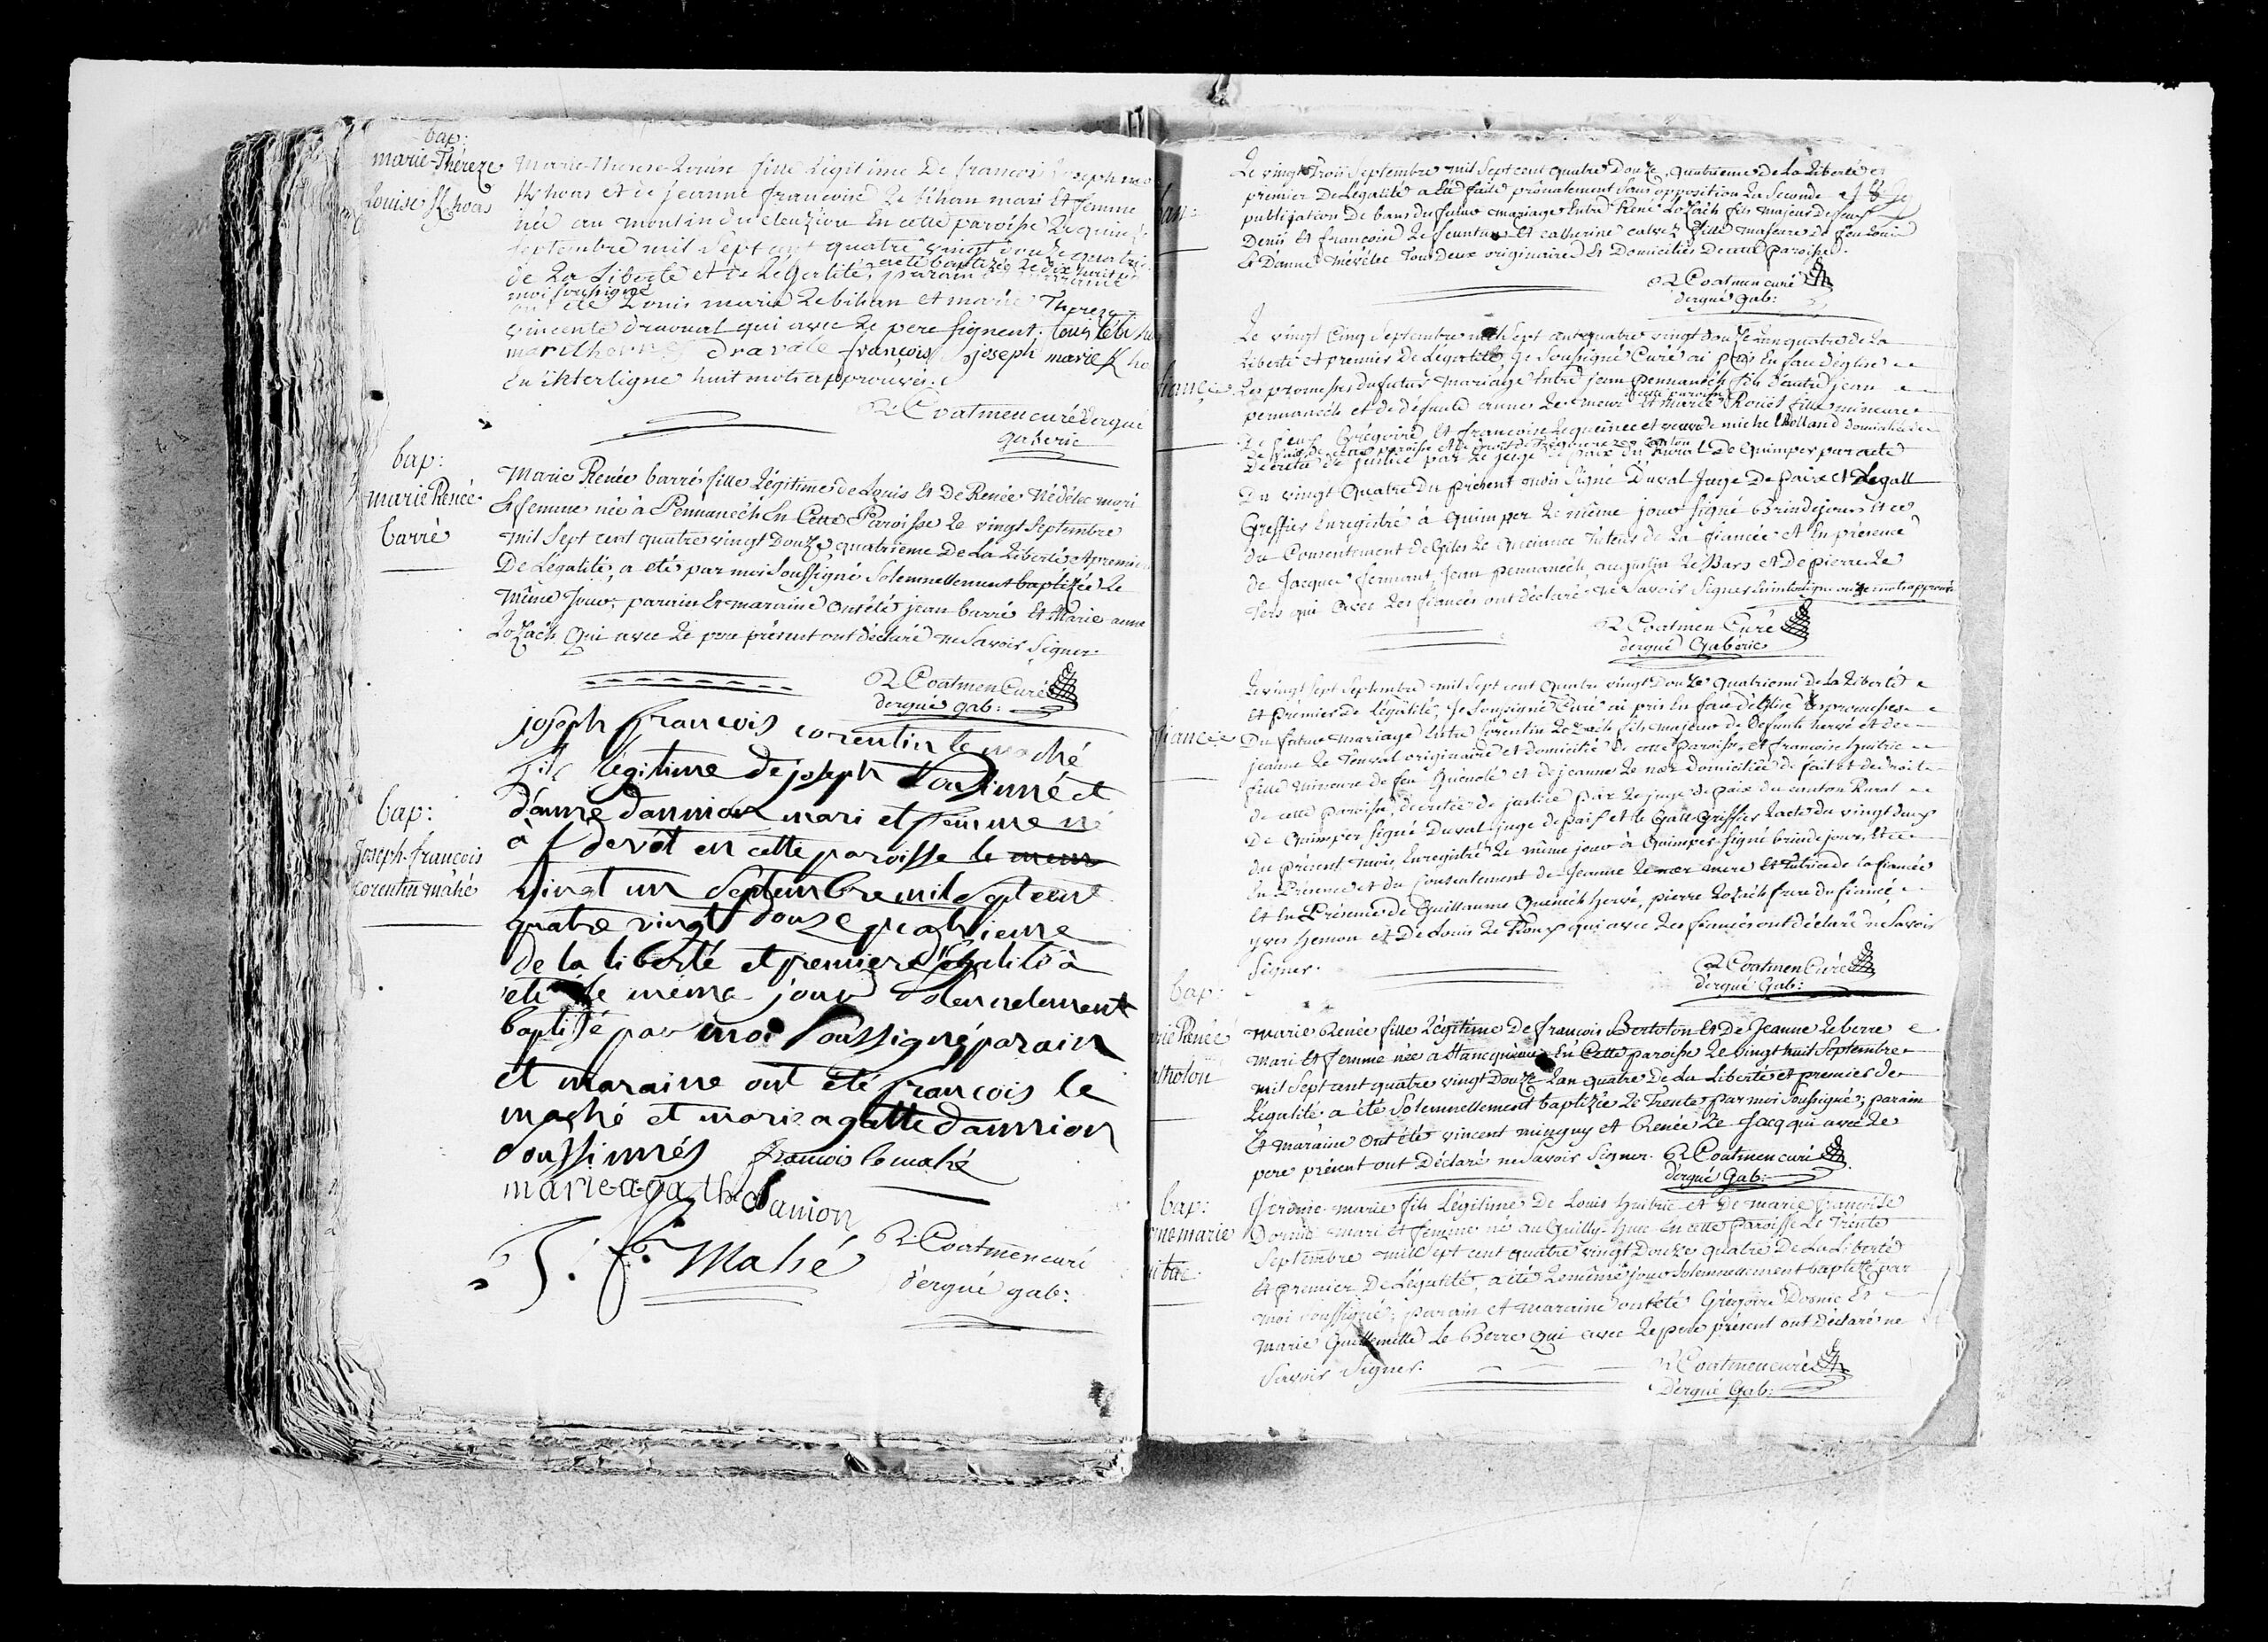 bap:
marie-Théreze
Louise Khoas
Marie-Therese-Louise fille Légitime De francois Joseph
Khoas et de jeanne francoise Le bihan mari Et femme
née au moulin du cleuziou En cette paroisse Le quinze
Septembre mil Sept cent quatre vingt douze quatri
de La Liberté et de Légalité, a eté baptizée Le dix huit par
moi soussigné parain et maraine
ont été Louis marie Lebihan et marie Thereze
vincente dravual qui avec Le pere Signent; Louis lebihan
dravale françois joseph marie Kho
En interligne huit mots approuvés.
R Coatmen curé d'ergué
gaberic
bap:
marie Renée
barré
Marie Renée barré fille Légitime de Louis Et De Renée Nédélec mari
Et femme née à Pennanéch En Cette Paroisse Le vingt Septembre
mil Sept cent quatre vingt Douze, quatrieme De La Liberté et premier
De Légalité, a eté par moi Soussigné Solemnellement baptizée Le
même Jour, parain Et maraine ont été jean barré Et Marie-anne
Lozach Qui avec Le pere présent ont déclaré ne Savoir Signer.
R Coatmen Curé
d'ergué gab:
bap:
Joseph-francois
Corentin mahé
joseph françois corentin le mahé
fils légitime de joseph soussinné et
d'anne dannion mari et femme né
à K devot en cette paroisse le
vingt un Septembre mil Sept cent
quatre vingt douze quatrieme
de la liberté et premiere d'égalité à
été le même jour solennelement
baptisé par moi Soussigné parain
et maraine ont été françois le
mahé et marie agatte dannion
soussinnés francois le mahé
marie-agathe danion
J. f. Mahé
R. Coatmen curé
d'ergué gab:
ban:
Le vingt Trois Septembre mil Sept cent quatre Douze, quatrieme De La Liberté et
premier De Légalité a été faite prônalement Sans opposition La Seconde
publication De bans du futur mariage Entre René Lozach fils majeur De feus
Denis Et francoise Le feunteun Et catherine calvez fille majeure de feu Louis
Et D'anne Névélec Tous Deux originaires Et Domiciliés De cette paroisse.
R Coatmen curé
d'ergué gab:
fiance
Le vingt Cinq Septembre mil Sept cent quatre vingt douze L'an quatre de La
Liberté et premier De Légalité Je Soussigné Curé ai pris En face d'église
Les promesses du futur mariage Entre jean pennanéch fils d'autre jean
pennanéch et de défunte anne Le meur de cette paroisse Et Marie Roüet fille mineure
de feus Grégoire Et francoise Le queinec et veuve de michel Rolland domiciliée
de fait de cette paroisse et de droit de Trégourez canton
Décrétée de justice par Le juge de paix du Rural De Quimper par acte
Du vingt Quatre Du présent mois Signé Duval Juge De Paix Et Legall
Greffier Enregistré à Quimper Le même jour Signé brindejonc, Et ce
du Consentement de Gilles Le Queinec Tuteur de La fiancée et En présence
de Jacques fermant, Jean pennanéch, augustin Le Bars et De pierre Le
qui avec Les fiancés ont déclaré ne Savoir Signer En interligne onze mots approuvés
R Coatmen Curé
d'ergué Gabéric
fiance
Le vingt Sept Septembre mil Sept cent Quatre vingt Douze Quatrieme de La Liberté
Et Premier de Légalité, Je Soussigné Curé ai pris En face d'Eglise Les promesses
Du futur Mariage Entre Corentin Lozach fils majeur de Défunts hervé et de
jeanne Le Tourat originaire et domicilié de cette Paroisse, et francoise huitric
fille Mineure de feu Guénolé et de jeanne Le noer domiciliée de fait et de droit
de cette paroisse, décretée de justice par Le juge de paix du canton Rural
De Quimper signé Duval juge de paix et Le Gall Greffier Lacte du vingt deux
du présent mois, Enregistré Le même jour à Quimper Signé brindejonc, Et ce
En Présence et du Consentement de Jeanne Le noer mere Et Tutrice de La fiancée
Et En Présence de Guillaume Quenéch hervé, pierre Lozach frere du fiancé
yves hemon et De Louis Le Roux qui avec Les fiancés ont déclaré ne Savoir
Signer.
R Coatmen Curé
d'ergué Gab:
bap:
rie Renée
rtholon
Marie Renée fille Légitime De francois Bertolon Et De Jeanne Leberre
Mari Et femme née a Stancquéau En Cette paroisse Le vingt huit Septembre
mil Sept cent quatre vingt Douze L'an quatre De La Liberté et premier de
Légalité a été Solemnellement baptizée Le Trente par moi Soussigné; parain
Et maraine ont été vincent minguy et Renée Le Jacq qui avec Le
pere présent ont Déclaré ne Savoir Signer. R Coatmen curé
d'ergué Gab:
bap:
me marie
itric
Jerôme-marie fils Légitime De Louis huitric et De marie francoise
Dornic mari et femme né au Quilly-huec En cette Paroisse Le Trente
Septembre mil Sept cent quatre vingt Douze quatre De La Liberté
Et premier De Légalité, a été Le même jour Solemnellement baptizé par
moi Soussigné; parain et maraine ont été Grégoire Dornic Et
marie Guillemette Le Berre Qui avec Le pere présent ont Déclaré ne
Savoir Signer.
R Coatmen curé
D'ergué Gab: